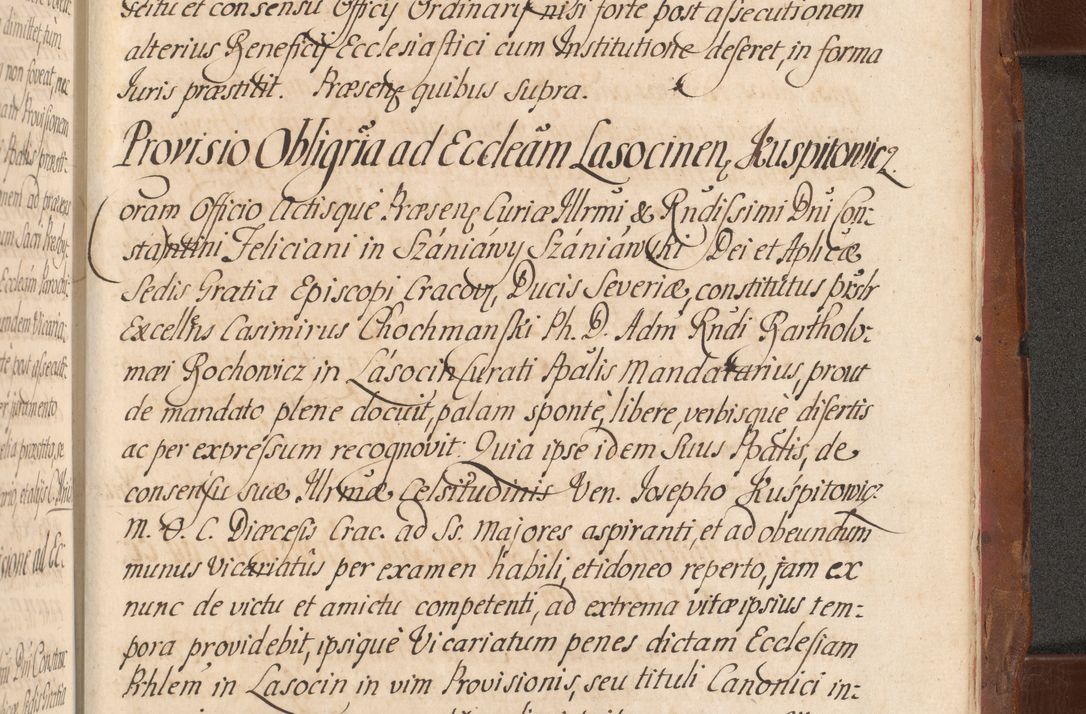 scitu et consensu Officij Ordinarij nisi forte post assecutionem
alterius Beneficij Ecclesiastici cum Institutione deseret, in forma
Iuris præstitit. Præsentę quibus supra.
Provisio Obligr̃ia ad Eccleãm Lasocinenę Kuspitowicz.
Coram Officio Actisque Præsenę Curiæ Illrmi & Rndissimi Dni Con:
stantini Feliciani in Szániáwy Szániáwski Dei et Aplicæ
Sedis Gratia Episcopi Cracovę, Ducis Severiæ, constitutus pr̃str
Excellns Casimirus Chochmanski Ph. D. Adm Rndi Bartholo:
mæi Bochowicz in Lásocin Curati Spãlis Mandatarius, prout
de mandato plene docuit, palam sponte, libere, verbisque disertis
ac per expressum recognovit: Quia ipse idem Suus Spãlis, de
consensu suæ Illrmæ Celsitudinis Ven. Iosepho Kuspitowicz
M. O. C. Diæcesis Crac. ad Ss. Majores aspiranti, et ad obeundum
munus Vicariatûs per examen habili, et idoneo reperto, jam ex
nunc de victu et amictu competenti, ad extrema vitæ ipsius tem:
pora providebit, ipsique Vicariatum penes dictam Ecclesiam
Pchlem in Lasocin in vim Provisionis, seu tituli Canonici in: